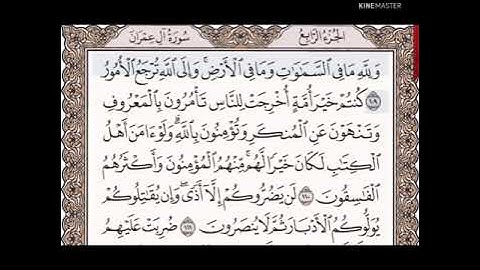 MADE WITH
KINEMASTER
سُورَةُ آلِ عِمْرَانَ
الجُزْءُ الرَّابِعُ
وَلِلَّهِ مَا فِي السَّمَٰوَٰتِ وَمَا فِي الْأَرْضِ ۚ وَإِلَى اللَّهِ تُرْجَعُ الْأُمُورُ
۝١٠٩ كُنتُمْ خَيْرَ أُمَّةٍ أُخْرِجَتْ لِلنَّاسِ تَأْمُرُونَ بِالْمَعْرُوفِ
وَتَنْهَوْنَ عَنِ الْمُنكَرِ وَتُؤْمِنُونَ بِاللَّهِ ۗ وَلَوْ ءَامَنَ أَهْلُ
الْكِتَٰبِ لَكَانَ خَيْرًا لَّهُم ۚ مِّنْهُمُ الْمُؤْمِنُونَ وَأَكْثَرُهُمُ
الْفَٰسِقُونَ ۝١١٠ لَن يَضُرُّوكُمْ إِلَّا أَذًى ۖ وَإِن يُقَٰتِلُوكُمْ
يُوَلُّوكُمُ الْأَدْبَارَ ثُمَّ لَا يُنصَرُونَ ۝١١١ ضُرِبَتْ عَلَيْهِمُ